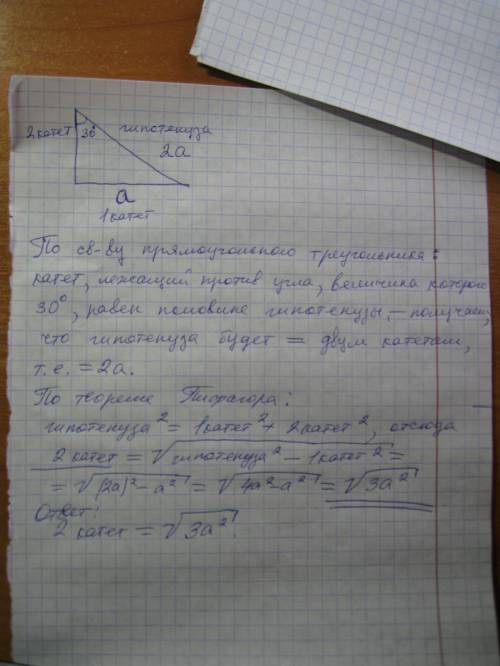 2 катет 30° гипотенуза
2a
a
1 катет
По св-ву прямоугольного треугольника:
катет, лежащий против угла, величина которого
30°, равен половине гипотенузы. – получаем,
что гипотенуза будет = двум катетам,
т.е. = 2a.
По теореме Пифагора:
гипотенуза² = 1 катет² + 2 катет², отсюда
2 катет = √гипотенуза² – 1 катет² =
= √(2a)² – a² = √4a² – a² = √3a²
Ответ:
2 катет = √3a².